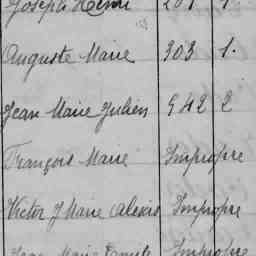 Joseph Henri 201 1.
Auguste Marie 303 1.
Jean Marie Julien 942 2
François Marie Impropre
Victor J Marie Alexis Impropre
Jean Marie Impropre